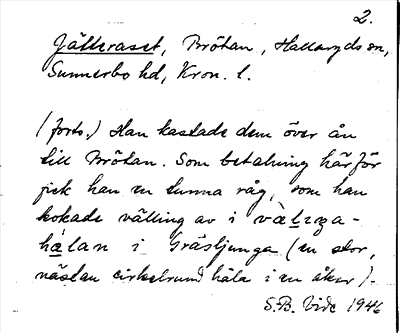 2.
Jätteraset, Brötan, Hallaryds sn,
Sunnerbo hd, Kron. l.
(forts.) Han kastade dem över ån
till Brötan. Som betalning härför
fick han en tunna råg, som han
kokade välling av i
hålan i Gräsljunga (en stor,
nästan cirkelrund håla i en åker).
S.B. Vide 1946